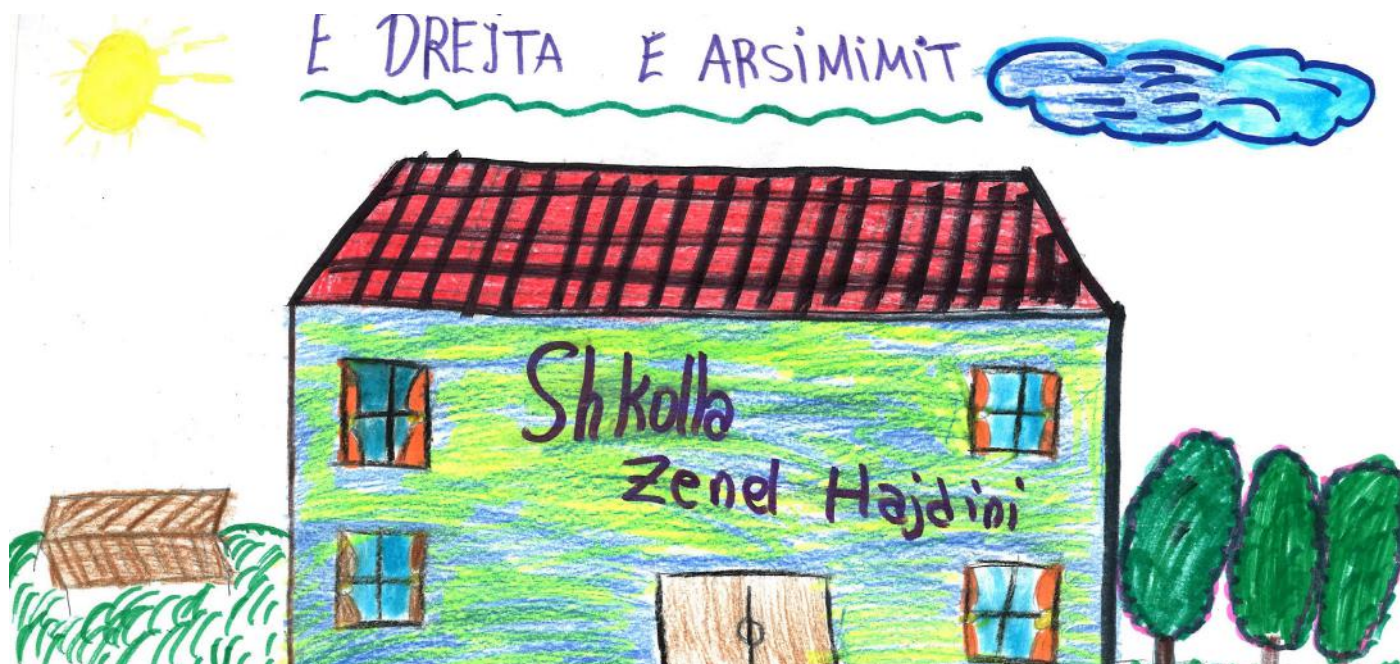 E DREJTA E ARSiMiMiT
Shkolla
Zenel Hajdini